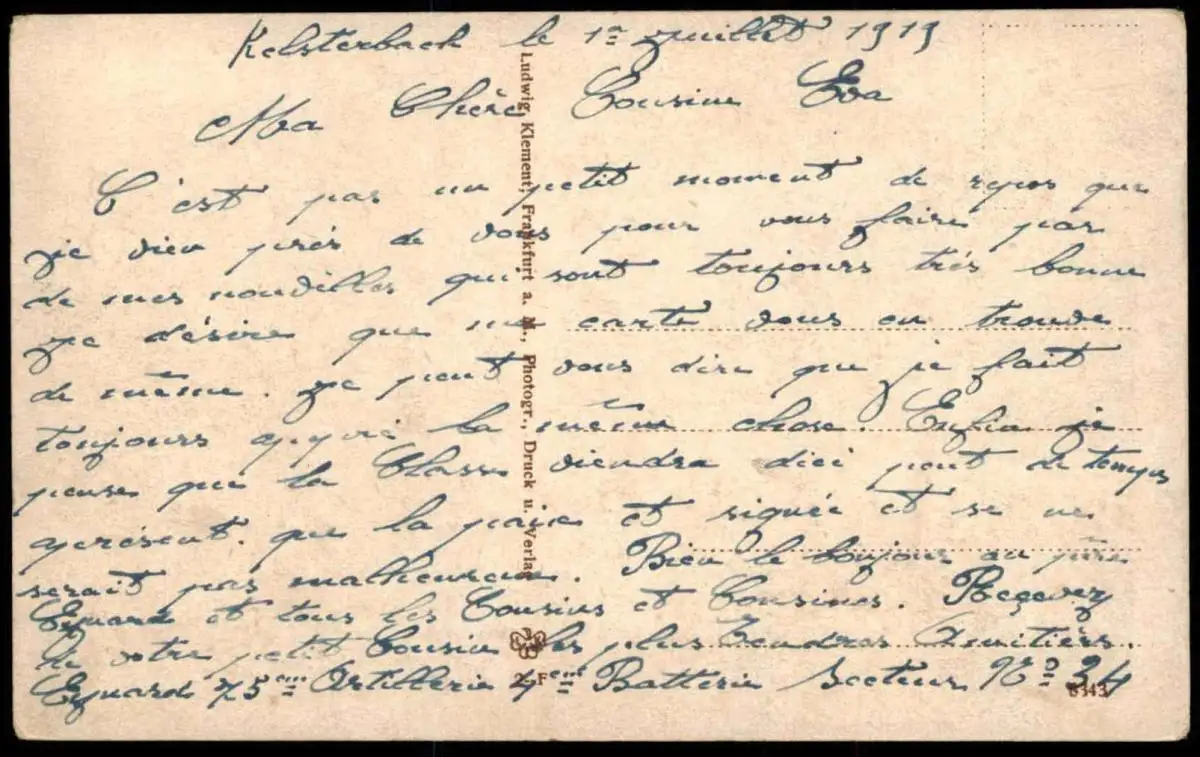 Kelsterbach le 1er Juillet 1919
Ma Chère Cousine Eva
C'est pas un petit moment de repos que
je vien près de vous pour vous faire par
de mes nouvelles qui sont toujours très bonne
je désire que ma carte vous en trouve
de même. je peut vous dire que je fait
toujours apprè la même chose. Enfin je
pense que la Classe viendra dici peut de temps
aprésent. que la paix et signée et se ne
serait pas malheureux. Bien le boujour au père
Eyuard et tous les Cousins et Cousines. Reçevez
de votre petit Cousin les plus Tendres Amitiérs.
Eyuard 75em Artillerie 4em Batterie Secteur No 34
Ludwig Klement, Frankfurt a. M., Photogr., Druck u. Verlag
2 F
8143